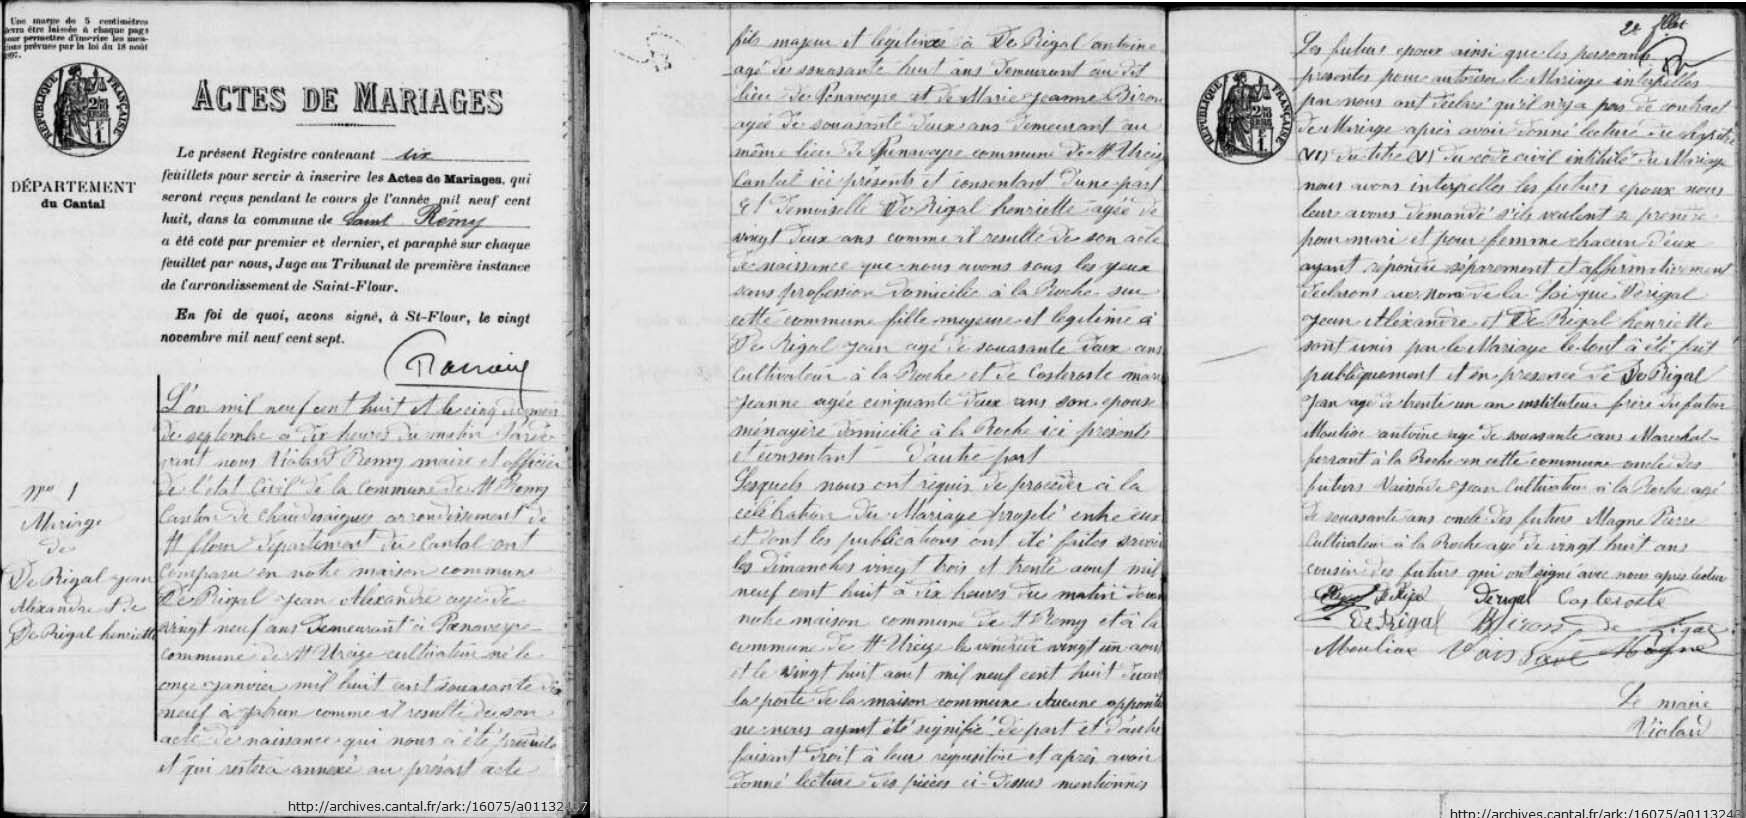 Une marge de 5 centimètres
devra être laissée à chaque page
pour permettre d'inscrire les men-
tions prévues par la loi du 18 août
RÉPUBLIQUE FRANÇAISE
DÉPARTEMENT
du Cantal
ACTES DE MARIAGES
Le présent Registre contenant six
feuillets pour servir à inscrire les Actes de Mariages, qui
seront reçus pendant le cours de l'année mil neuf cent
huit, dans la commune de Saint Rémy
a été coté par premier et dernier, et paraphé sur chaque
feuillet par nous, Juge au Tribunal de première instance
de l'arrondissement de Saint-Flour.
En foi de quoi, avons signé, à St-Flour, le vingt
novembre mil neuf cent sept.
No 1
Mariage
de
De Rigal Jean
Alexandre & de
De Rigal henriette
L'an mil neuf cent huit et le cinq du mois
de septembre à dix heures du matin Parde
vant nous Vialard Remy maire et officier
de l'etat Civil de la commune de St Remy
Canton de Chaudesaigues arrondissement de
St flour departement du Cantal ont
comparu en notre maison commune
De Rigal Jean Alexandre agé de
vingt neuf ans demeurant à Penaveyre
commune de St Urcize cultivateur né le
onze janvier mil huit cent souasante dix
neuf à Jabrun comme il resulte de son
acte de naissance qui nous à été produite
et qui restera annexé au présent acte
http://archives.cantal.fr/ark:/16075/a01132457
fils majeur et légitimes à De Rigal antoine
agé de souasante huit ans demeurant au dit
lieu de Penaveyre et de Marie Jeanne Biron
agée de souasante deux ans demeurant au
même lieu de Penaveyre commune de St Urcize
Cantal ici présents et consentant d'une part
Et Demoiselle De Rigal henriette agée de
vingt deux ans comme il resulte de son acte
de naissance que nous avons sous les yeux
sans profession domicilié à la Roche sur
cette commune fille majeure et legitime à
De Rigal Jean agé de souasante deux ans
Cultivateur à la Roche et de Casteroste marie
Jeanne agée cinquante deux ans son epouse
menagère domicilié à la Roche ici presents
et consentant d'autre part
Lesquels nous ont requis de proceder à la
célébration du Mariage projeté entre eux
et dont les publications ont été faites savoir
les dimanches vingt trois et trente aout mil
neuf cent huit à dix heures du matin devant
notre maison commune de St Remy et à la
commune de St Urcize le vendredi vingt un aout
et le vingt huit aout mil neuf cent huit devant
la porte de la maison commune Aucune opposition
ne nous ayant été signifié de part et d'autre
faisant droit à leur requisition et après avoir
donné lecture des pièces ci-dessus mentionnés
2e fllet
Les futurs epoux ainsi que les personnes
presentes pour autoriser le Mariage interpelles
par nous ont déclaré qu'il n'y a pas de contract
de Mariage après avoir donné lecture du chapitre
(VI) du titre (V) du code civil intitulé du Mariage
nous avons interpelles les futurs epoux nous
leur avons demandé s'ils veulent se prendre
pour mari et pour femme chacun d'eux
ayant répondu séparement et affirmativement
declarons au nom de la Loi que Derigal
Jean Alexandre et De Rigal henriette
sont unis par le Mariage le tout à été fait
publiquement et en presence de De Rigal
Jean agé de trente un an instituteur frère du futur
Moulias antoine agé de souasante ans Marechal-
ferrant à la Roche en cette commune oncle des
futurs Vaissade Jean Cultivateur à la Roche agé
de souasante ans oncle des futurs Magne Pierre
Cultivateur à la Roche agé de vingt huit ans
cousin des futurs qui ont signé avec nous apres lecture
Derigal Casteroste
De Rigal Biron de Rigal
Moulias Vaissade Magne
Le maire
Vialard